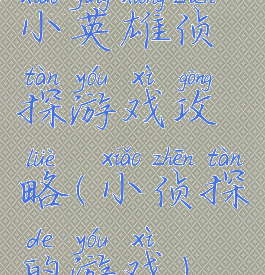 xiǎo yīng xióng zhēn
小英雄侦
tàn yóu xì gōng
探游戏攻
lüè xiǎo zhēn tàn
略(小侦探
de yóu xì
的游戏)